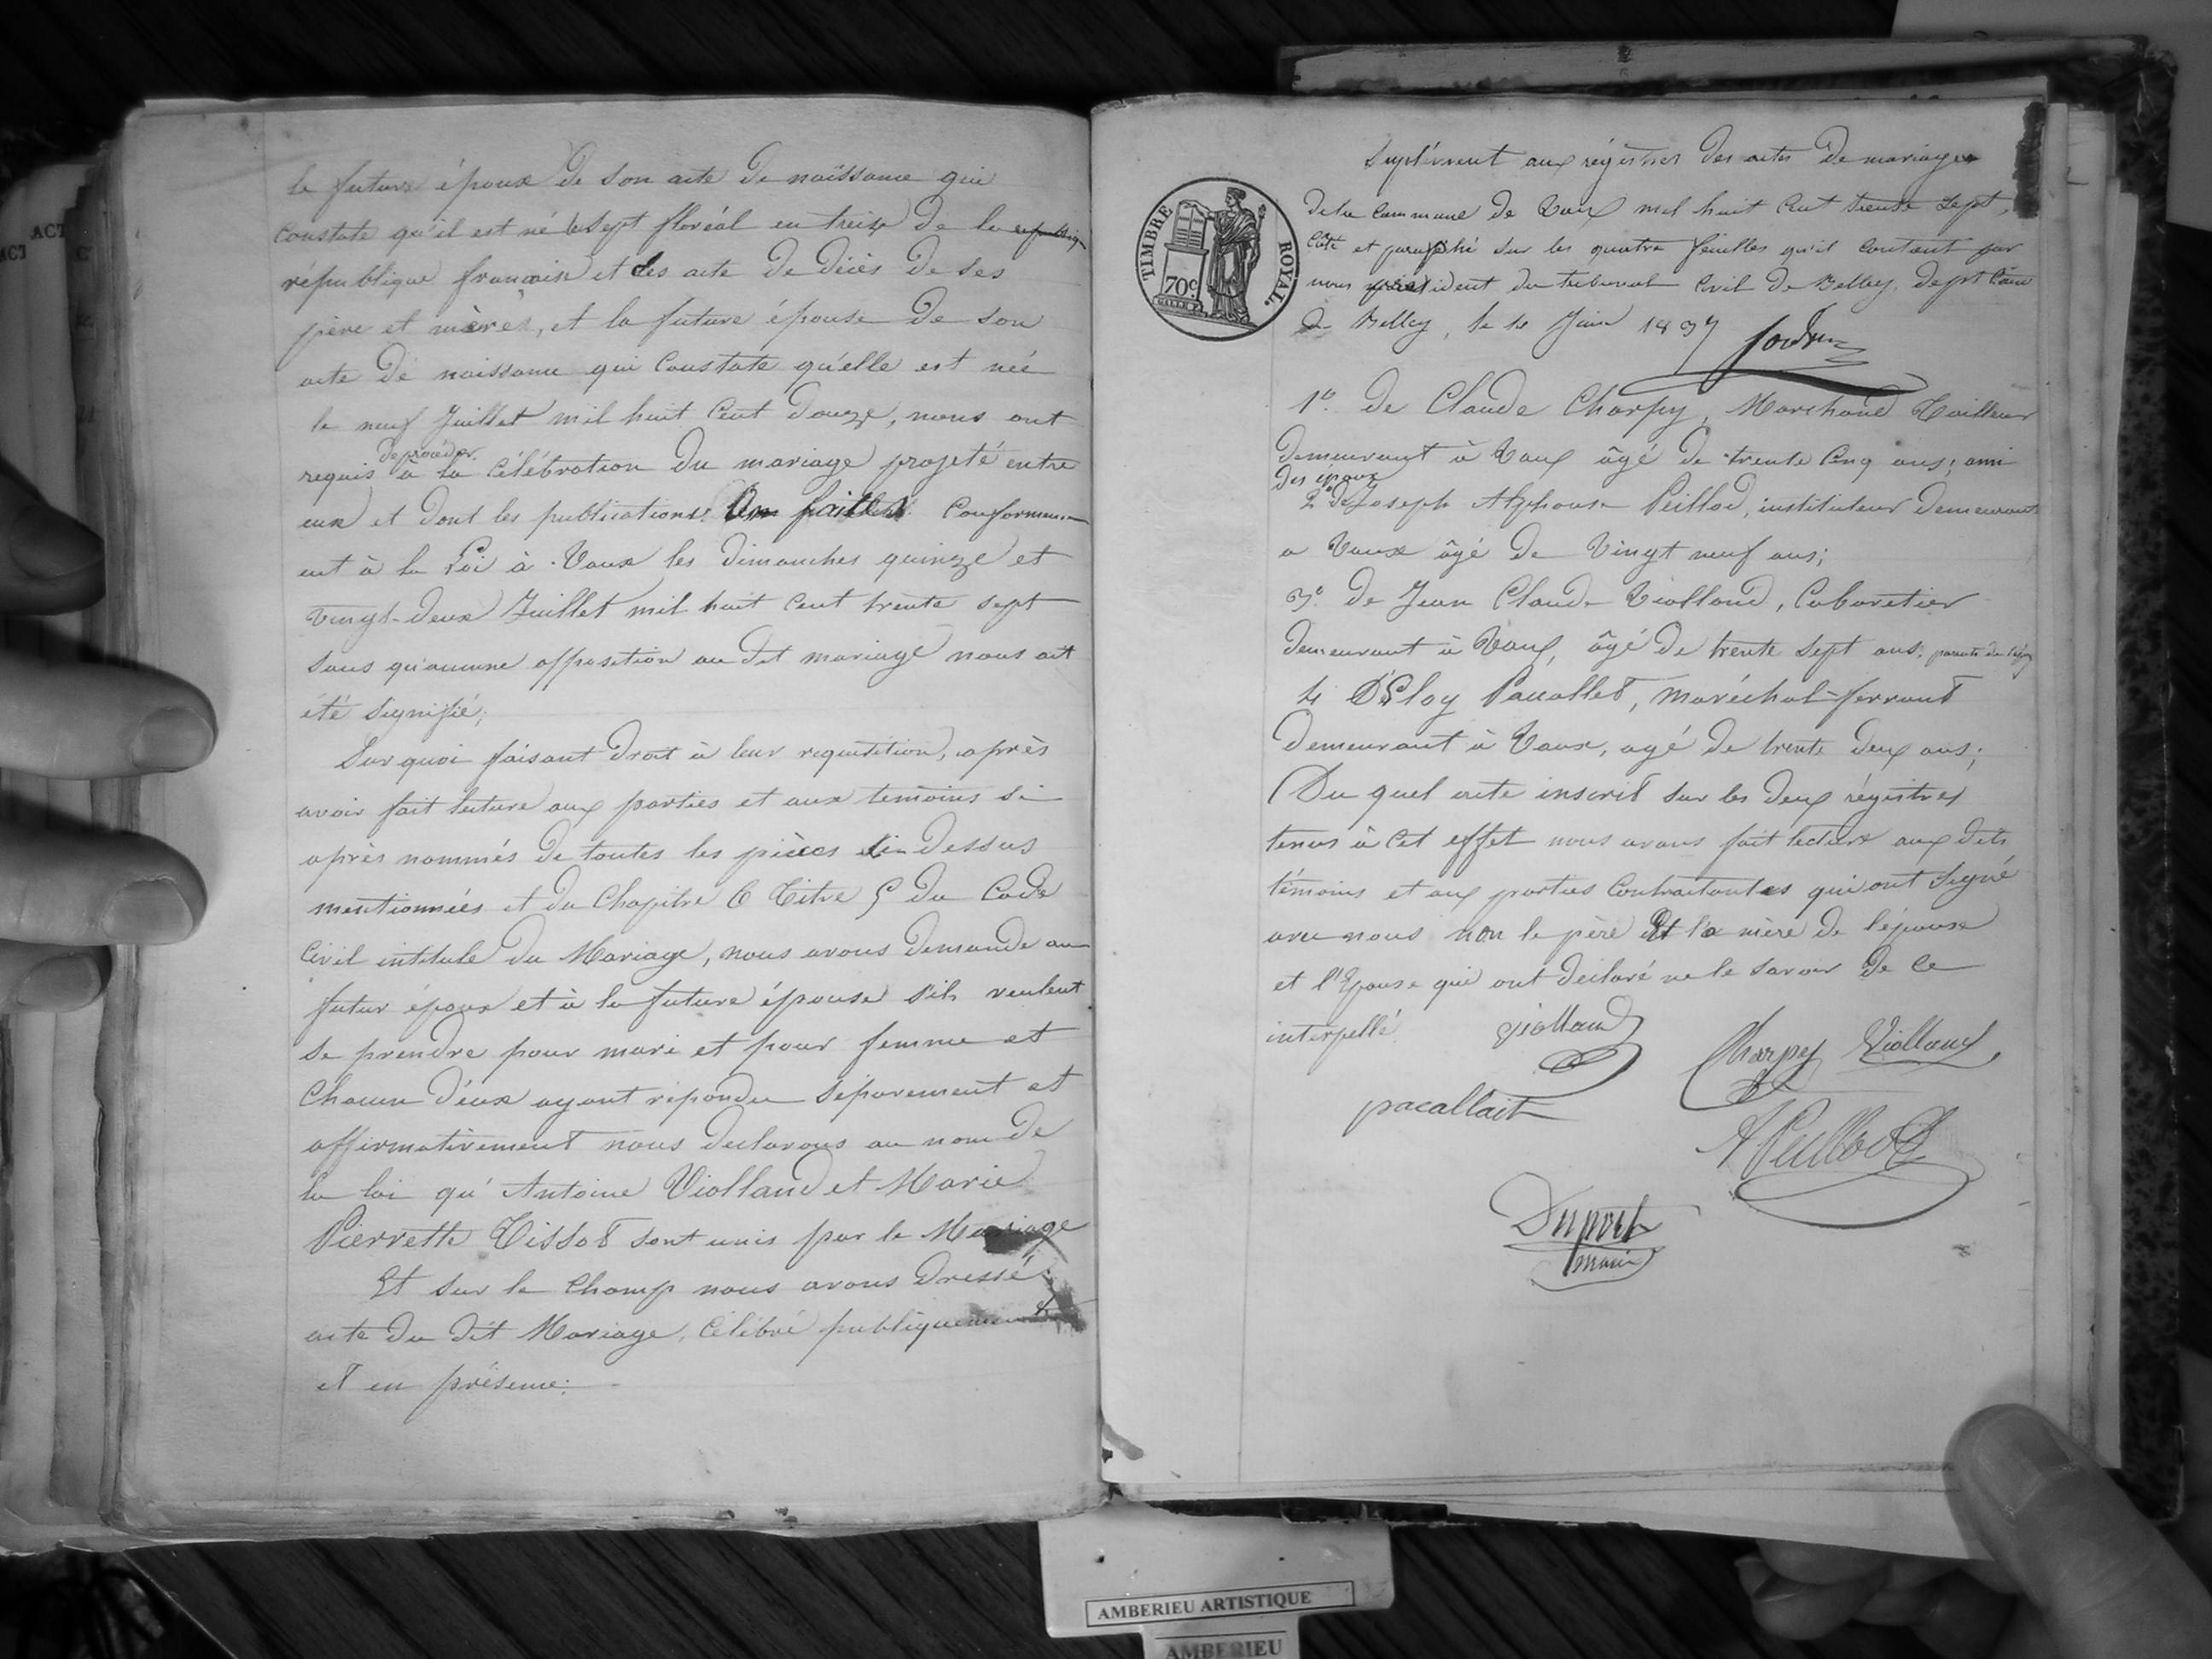 le future époux de son acte de naissance qui
constate qu'il est né le sept floréal en treize de la republiq
république francaise et des acte de décès de ses
père et mères, et la future épouse de son
acte de naissance qui constate qu'elle est née
le neuf Juillet mil huit cent douze, nous ont
de procéder
requis à la célébration du mariage projeté entre
eux et dont les publications faites conformem-
ent à la Loi à Vaux les dimanches quinze et
vingt-deux Juillet mil huit cent trente sept
sans qu'aucune opposition au dit mariage nous ait
été signifié;
Sur quoi faisant droit à leur requisition, après
avoir fait lecture aux parties et aux temoins si
après nommés de toutes les pièces ci-dessus
mentionnées et du Chapitre 6 Titre 5 du Code
Civil intitule du Mariage, nous avons demande au
futur époux et à la future épouse s'ils veulent
se prendre pour mari et pour femme et
Chacun d'eux ayant répondu séparement et
affirmativement nous declarons au nom de
la loi qu' Antoine Viollaud et Marie
Pierrette Tissot sont unis par le Mariage
Et sur le champ nous avons dressé
acte du dit Mariage, célébré publiquement
et en présence:
Suplément aux régistres des actes de mariages
de la commune de Vaux mil huit cent trente sept,
Coté et paraphé sur les quatre feuilles qu'il contient par
nous président du tribunal civil de Belley, dept
à Belley, le 14 Juin 1837
TIMBRE ROYAL.
70c
1º. de Claude Charpy, Marchand Tailleur
demeurant à Vaux âgé de trente cinq ans; ami
des époux
2º de Joseph Alphonse Peillod, instituteur demeurant
a Vaux âgé de vingt neuf ans;
3º. de Jean Claude Viollaud, Cabaretier
demeurant à Vaux, âgé de trente sept ans. parents de
4 D'Eloy Pacallet, maréchal-ferrant
demeurant à Vaux, agé de trente deux ans;
Du quel acte inscrit sur les deux régistres
tenus à cet effet nous avons fait lecture aux dits
témoins et aux parties contractantes qui ont signé
avec nous non le père Et la mère de l'épouse
et l'Epouse qui ont déclaré ne le savoir de ce
interpellé.
Viollaud
Charpy Viollaud
pacallait
APeillod
Duport
maire
ACT
ACT
AMBERIEU ARTISTIQUE
AMBERIEU